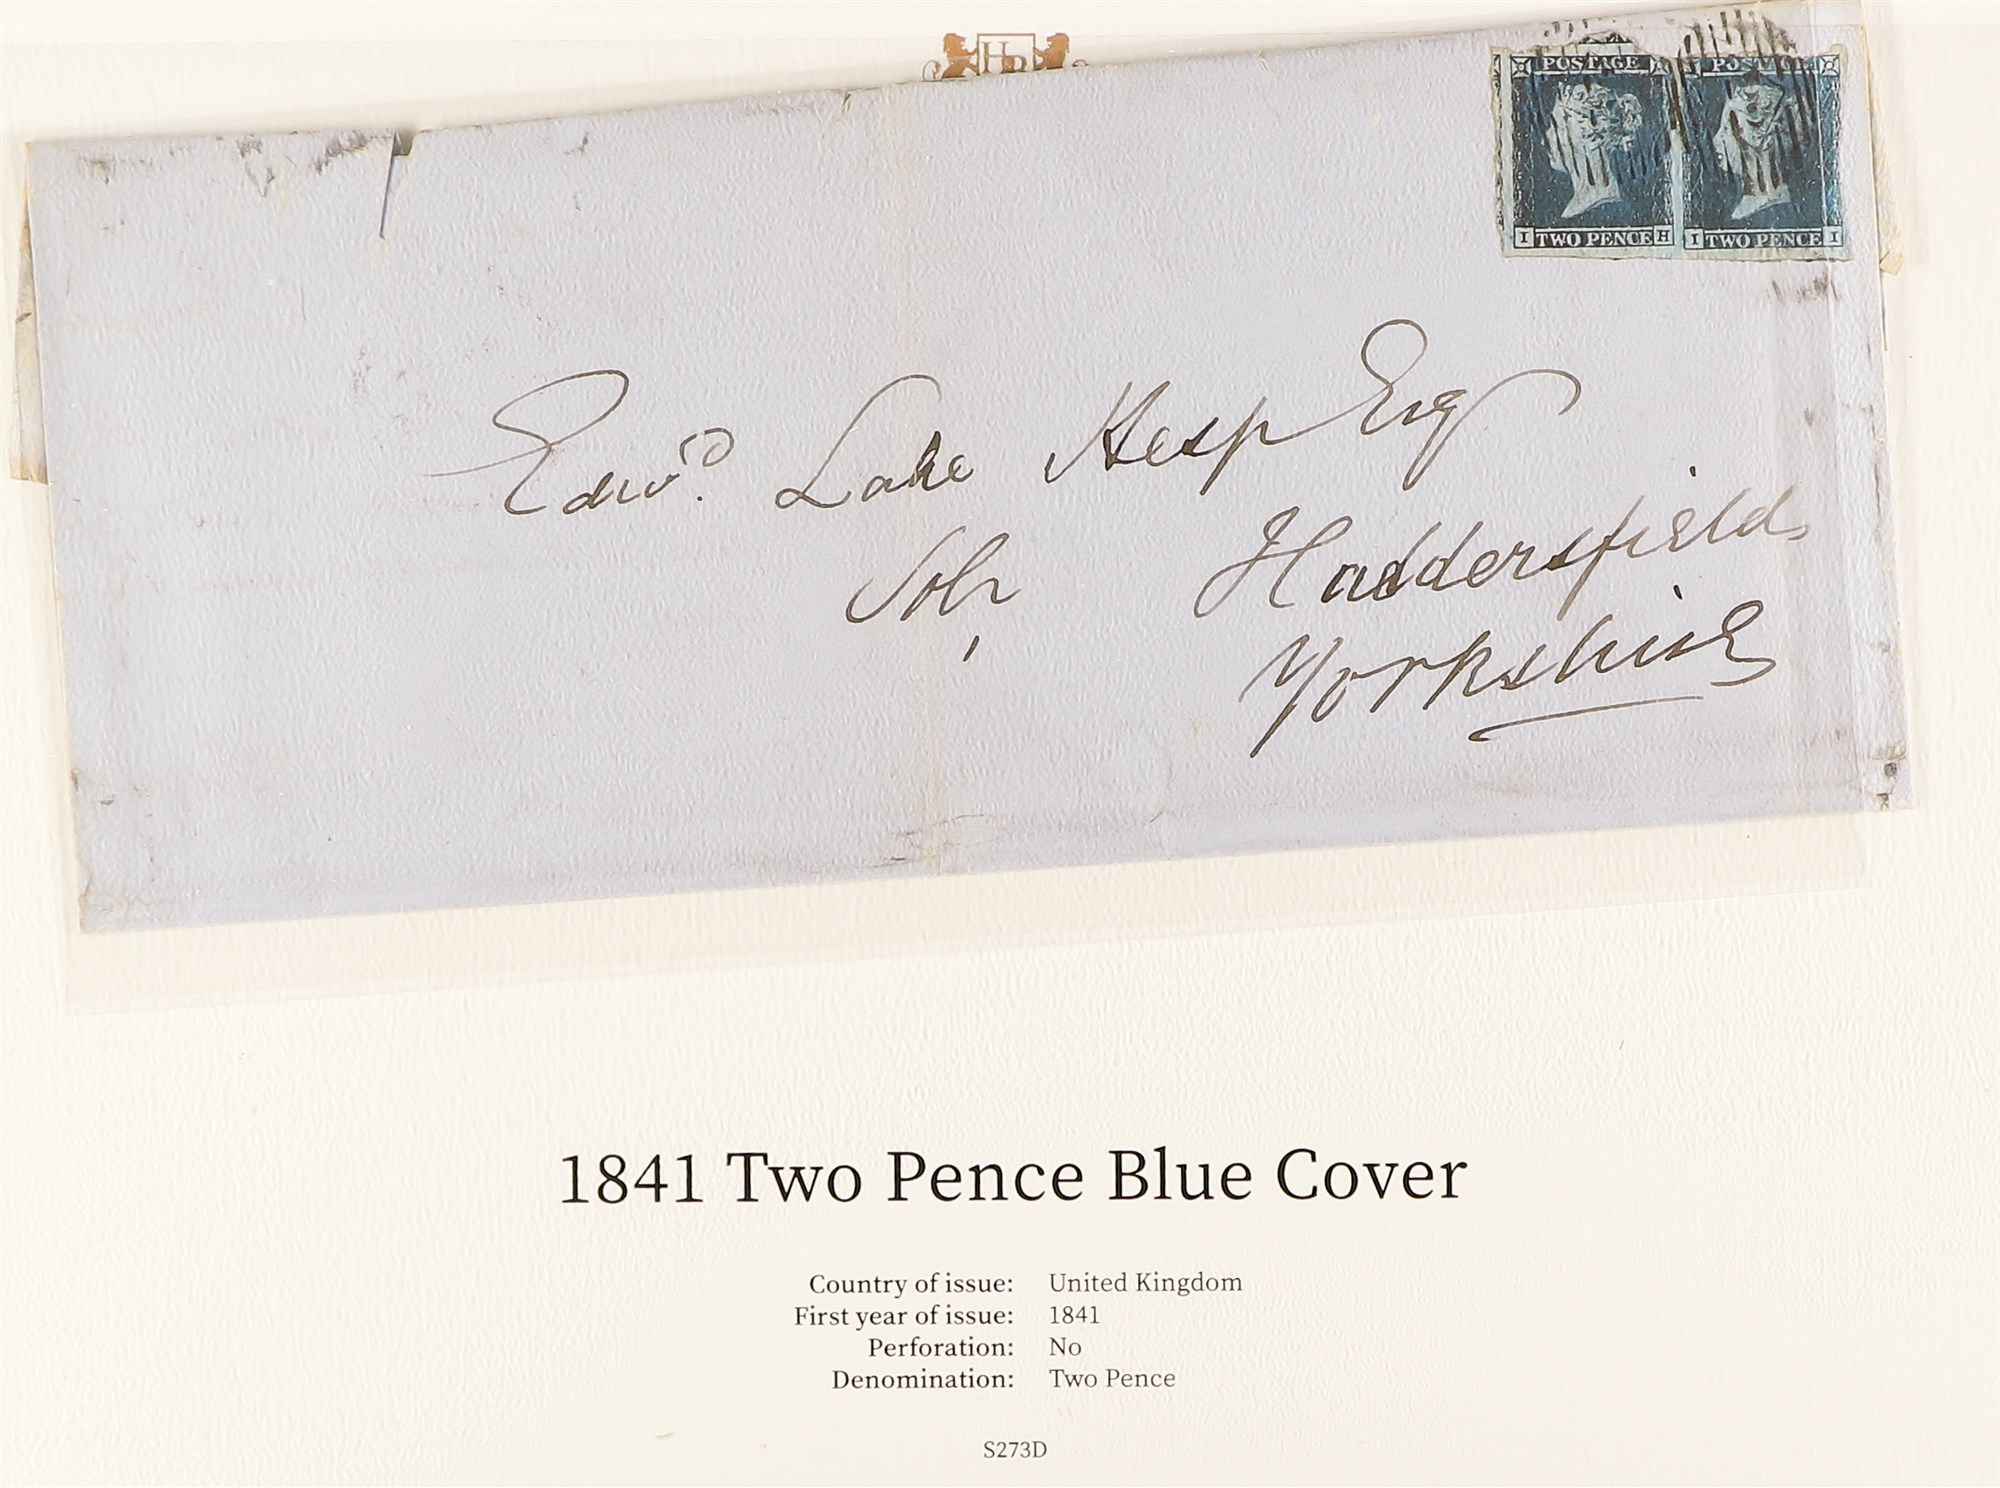 POSTAGE POSTAGE
I TWO PENCE H I TWO PENCE I
Edwd. Lake Hesp Esq
Solr Huddersfield
Yorkshire
1841 Two Pence Blue Cover
Country of issue: United Kingdom
First year of issue: 1841
Perforation: No
Denomination: Two Pence
S273D